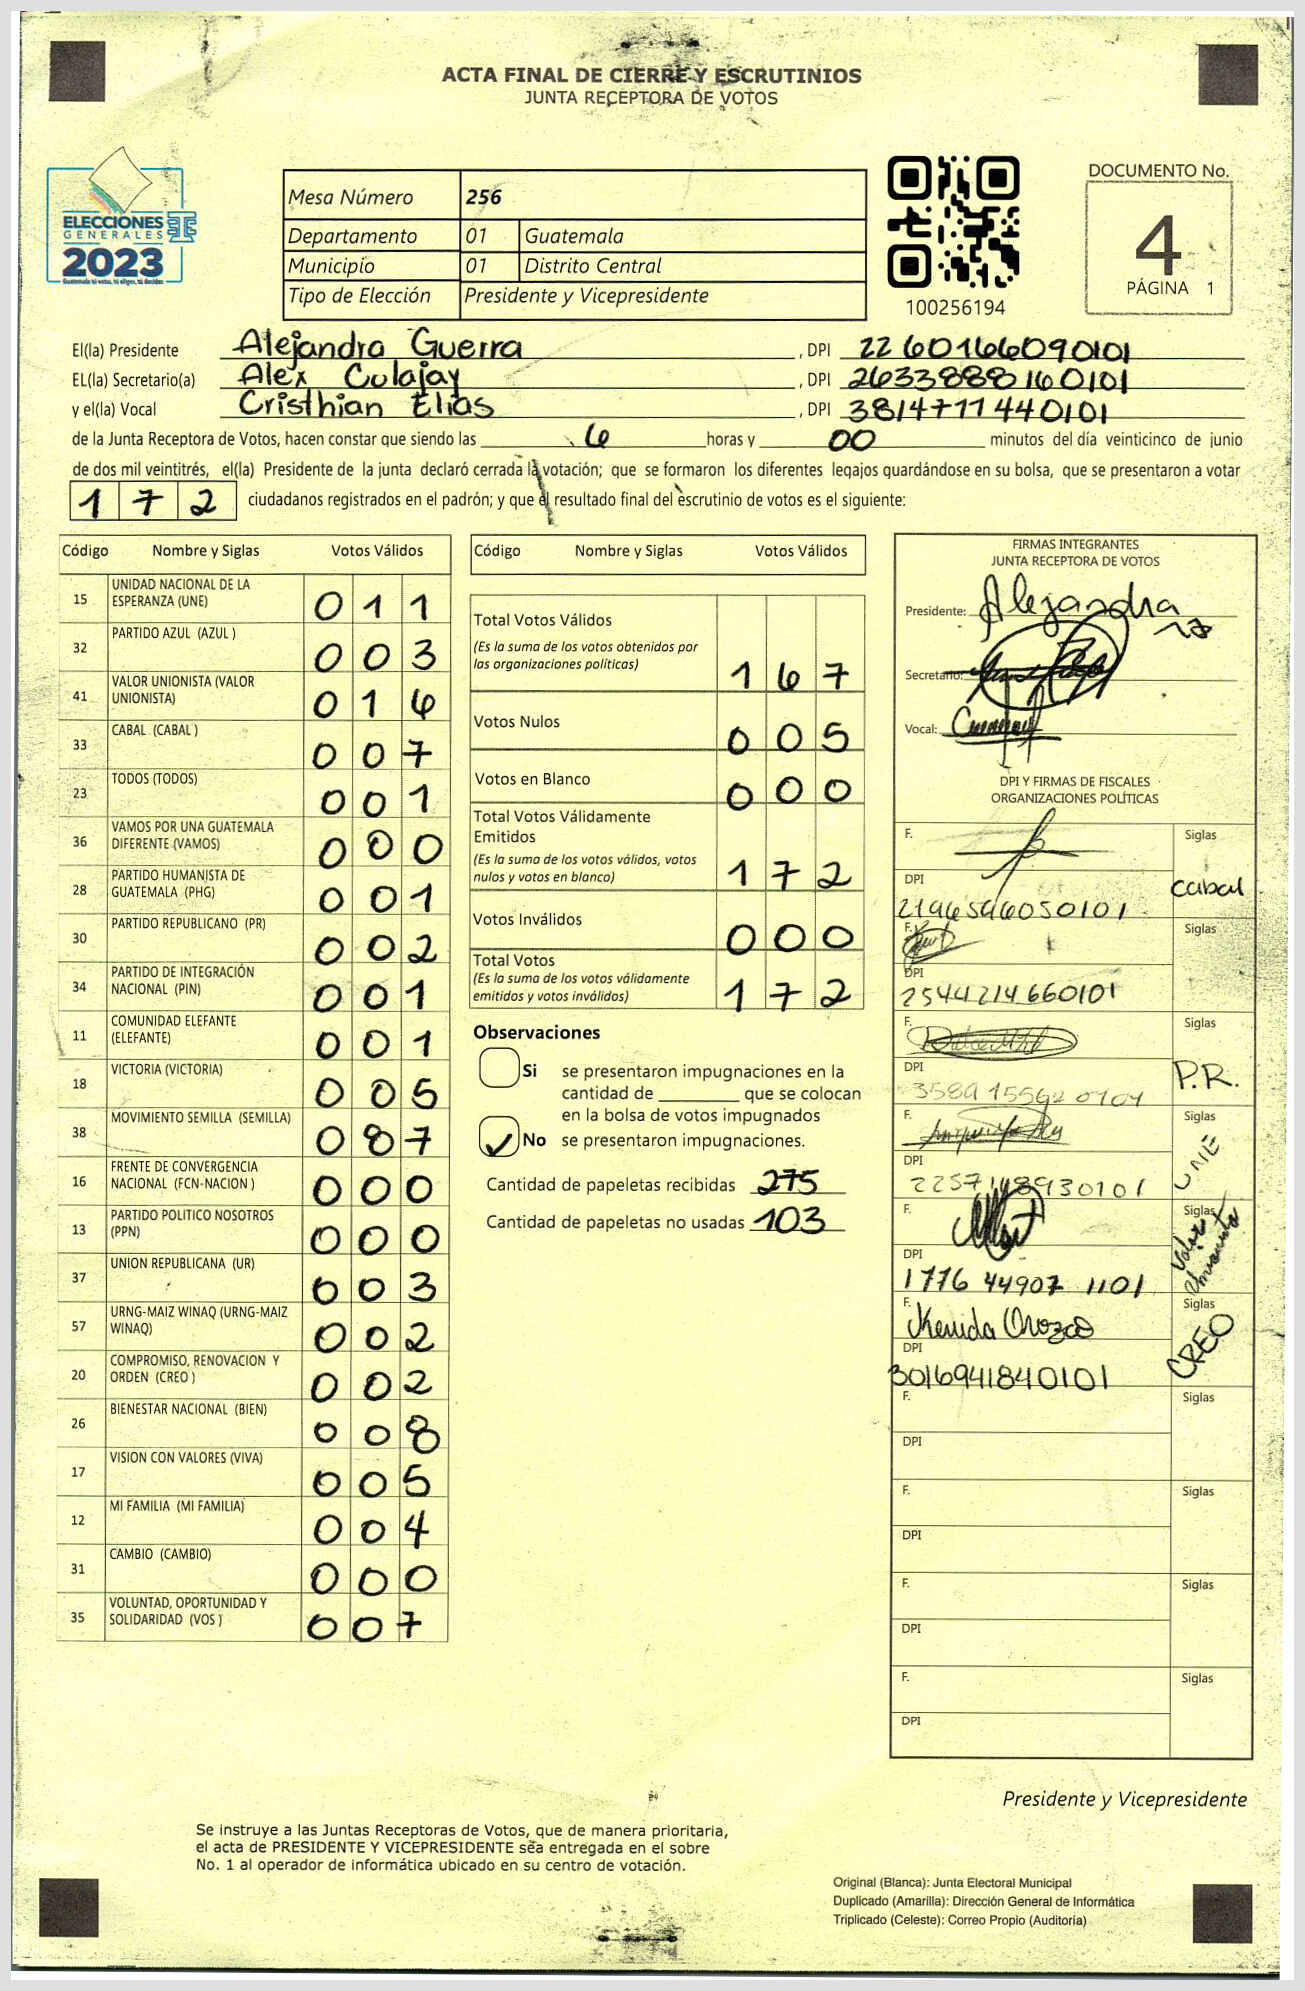 ACTA FINAL DE CIERRE Y ESCRUTINIOS
JUNTA RECEPTORA DE VOTOS
ELECCIONES
GENERALES
2023
Guatemala tú votas, tú eliges, tú decides
Mesa Número 256
Departamento 01 Guatemala
Municipio 01 Distrito Central
Tipo de Elección Presidente y Vicepresidente
100256194
DOCUMENTO No.
4
PÁGINA 1
El(la) Presidente Alejandra Guerra , DPI 2260166090101
EL(la) Secretario(a) Alex Culajay , DPI 2633888160101
y el(la) Vocal Cristhian Elías , DPI 3814711440101
de la Junta Receptora de Votos, hacen constar que siendo las 6 horas y 00 minutos del día veinticinco de junio
de dos mil veintitrés, el(la) Presidente de la junta declaró cerrada la votación; que se formaron los diferentes legajos guardándose en su bolsa, que se presentaron a votar
172 ciudadanos registrados en el padrón; y que el resultado final del escrutinio de votos es el siguiente:
Código Nombre y Siglas Votos Válidos
15 UNIDAD NACIONAL DE LA ESPERANZA (UNE) 011
32 PARTIDO AZUL (AZUL ) 003
41 VALOR UNIONISTA (VALOR UNIONISTA) 016
33 CABAL (CABAL ) 007
23 TODOS (TODOS) 001
36 VAMOS POR UNA GUATEMALA DIFERENTE (VAMOS) 000
28 PARTIDO HUMANISTA DE GUATEMALA (PHG) 001
30 PARTIDO REPUBLICANO (PR) 002
34 PARTIDO DE INTEGRACIÓN NACIONAL (PIN) 001
11 COMUNIDAD ELEFANTE (ELEFANTE) 001
18 VICTORIA (VICTORIA) 005
38 MOVIMIENTO SEMILLA (SEMILLA) 087
16 FRENTE DE CONVERGENCIA NACIONAL (FCN-NACION ) 000
13 PARTIDO POLITICO NOSOTROS (PPN) 000
37 UNION REPUBLICANA (UR) 003
57 URNG-MAIZ WINAQ (URNG-MAIZ WINAQ) 002
20 COMPROMISO, RENOVACION Y ORDEN (CREO ) 002
26 BIENESTAR NACIONAL (BIEN) 008
17 VISION CON VALORES (VIVA) 005
12 MI FAMILIA (MI FAMILIA) 004
31 CAMBIO (CAMBIO) 000
35 VOLUNTAD, OPORTUNIDAD Y SOLIDARIDAD (VOS ) 007
Código Nombre y Siglas Votos Válidos
Total Votos Válidos
(Es la suma de los votos obtenidos por
las organizaciones políticas) 167
Votos Nulos 005
Votos en Blanco 000
Total Votos Válidamente
Emitidos
(Es la suma de los votos válidos, votos
nulos y votos en blanco) 172
Votos Inválidos 000
Total Votos
(Es la suma de los votos válidamente
emitidos y votos inválidos) 172
Observaciones
Si se presentaron impugnaciones en la
cantidad de ________ que se colocan
en la bolsa de votos impugnados
No se presentaron impugnaciones.
Cantidad de papeletas recibidas 275
Cantidad de papeletas no usadas 103
FIRMAS INTEGRANTES
JUNTA RECEPTORA DE VOTOS
Presidente: Alejandra
Secretario:
Vocal:
DPI Y FIRMAS DE FISCALES
ORGANIZACIONES POLÍTICAS
F. Siglas
Cabal
DPI
2196596050101
F. Siglas
DPI
2544214660101
F. Siglas
P.R.
DPI
F. Siglas
UNE
DPI
F. Siglas
Valor Unionista
DPI
1776 44907 1101
F. Kenida Orozco Siglas
CREO
DPI
3016941840101
F. Siglas
DPI
F. Siglas
DPI
F. Siglas
DPI
F. Siglas
DPI
Presidente y Vicepresidente
Se instruye a las Juntas Receptoras de Votos, que de manera prioritaria,
el acta de PRESIDENTE Y VICEPRESIDENTE sea entregada en el sobre
No. 1 al operador de informática ubicado en su centro de votación.
Original (Blanca): Junta Electoral Municipal
Duplicado (Amarilla): Dirección General de Informática
Triplicado (Celeste): Correo Propio (Auditoria)